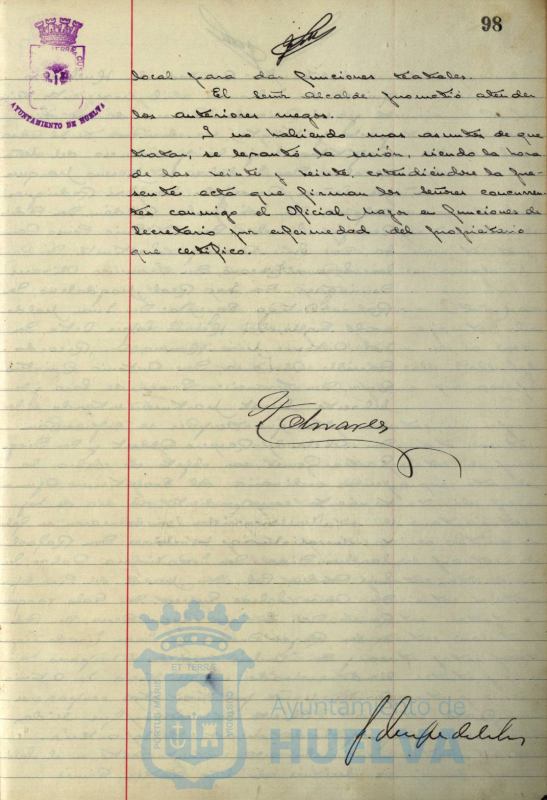 98
AYUNTAMIENTO DE HUELVA
local para dar funciones teatrales.
El Señor Alcalde prometió atender
los anteriores ruegos.
Y no habiendo mas asuntos de que
tratar, se levantó la sesión, siendo la hora
de las veinte y veinte, extendiendose la pre-
sente acta que firman los Señores concurren-
tes conmigo el Oficial Mayor en funciones de
Secretario por enfermedad del propietario
que certifico.
PORTUS MARIS ET TERRAE CUSTODIA
Ayuntamiento de
HUELVA